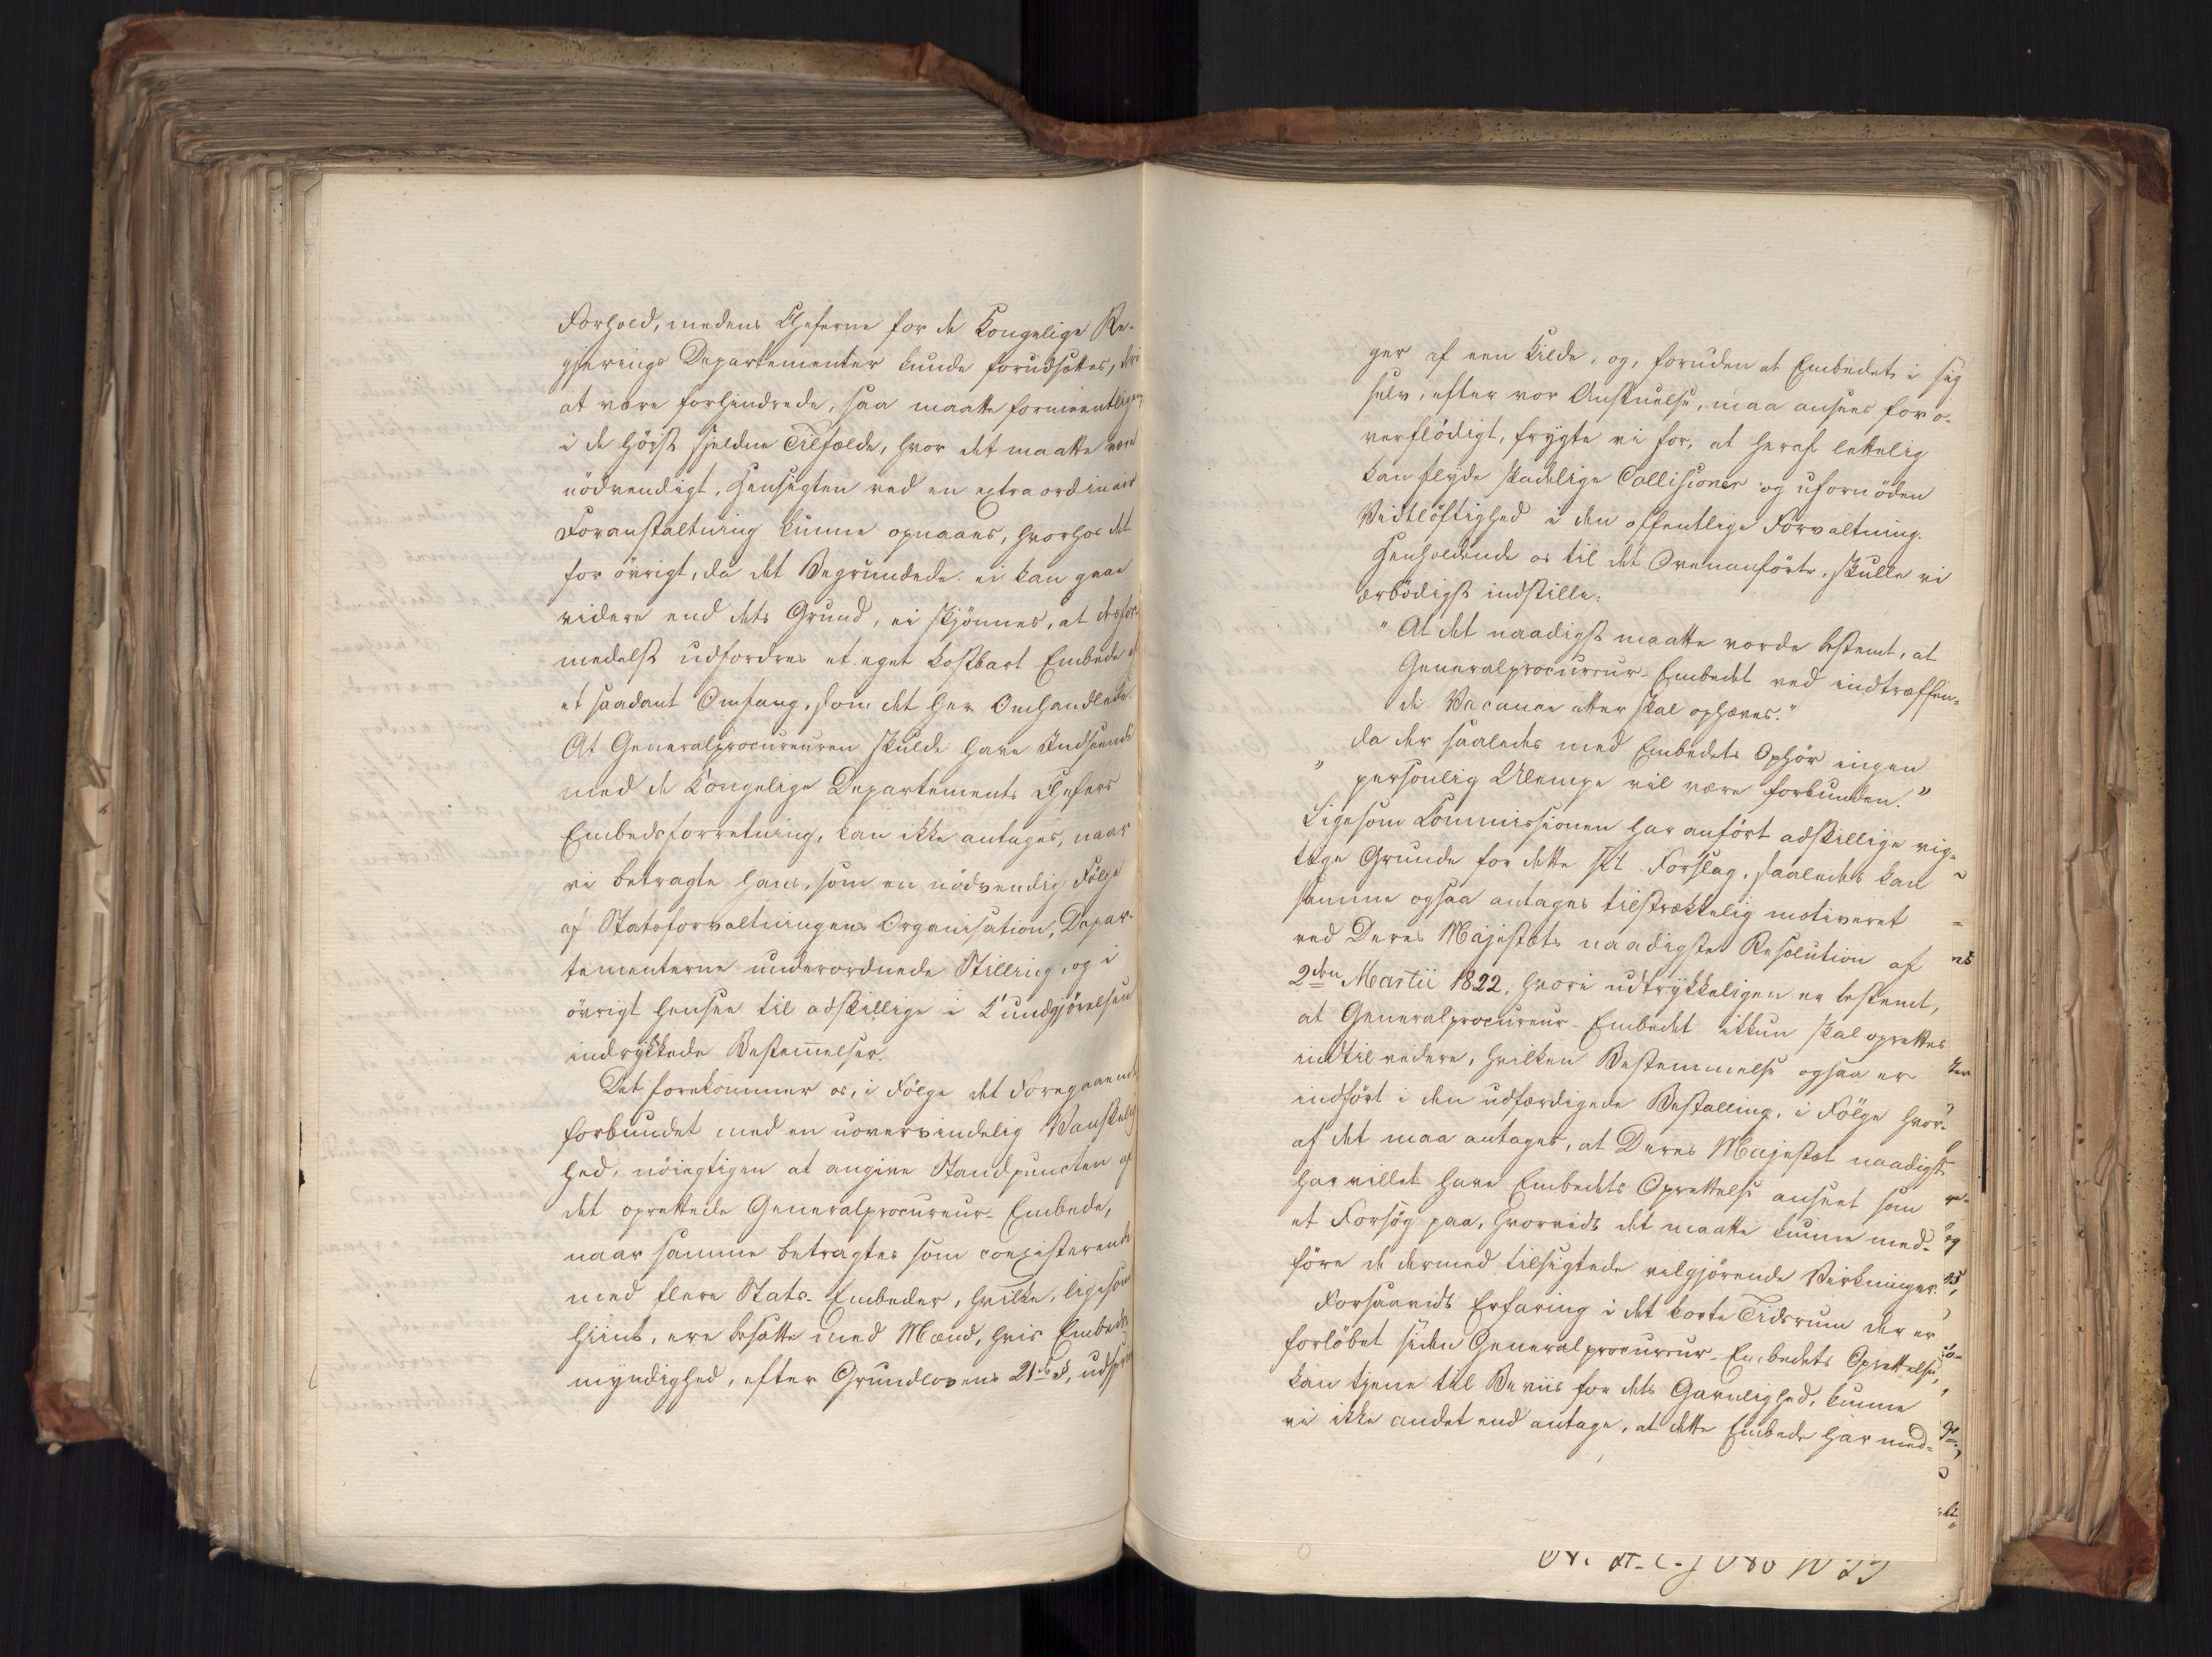 Forhold, medens Cheferne for de Kongelige Re-
gjerings Departementer kunde forudsættes,
at være forhindrede, saa maatte formeentligen
i de höist sjeldne Tilfælde, hvor det maatte være
nödvendigt, Hensigten ved en extraordinair
Foranstaltning kunne opnaaes, hvorhos det
for övrigt, da det Begrundede ei kan gaae
videre end dets Grund, ei skjönnes, at desfor-
medelst udfordres et eget kostbart Embede af
et saadant Omfang, som det her Omhandlede.
At Generalprocureuren skulde have Indseende
med de Kongelige Departements Chefers
Embedsforretning, kan ikke antages, naar
vi betragte hans, som en nödvendig Fölge
af Statsforvaltningens Organisation, Depar-
tementerne underordnede Stilling, og i
övrigt hensee til adskillige i Kundgjörelsen
indrykkede Bestemmelser.
Det forekommer os, i Fölge det Foregaaende
forbundet med en uovervindelig Vanskelig
hed, nöiagtigen at angive Standpuncten af
det oprettede Generalprocureur-Embede,
naar samme betragtes som coexisterende
med flere Stats-Embeder, hvilke, ligesom
hiint, ere besatte med Mænd, hvis Embeds
myndighed, efter Grundlovens 21de §, udsprin
ger af een Kilde, og, foruden at Embedet i sig
selv, efter vor Anskuelse, maa ansees for o-
verflödigt, frygte vi for, at heraf lettelig
kan flyde skadelige Collisioner og ufornöden
Vidtlöftighed i den offentlige Forvaltning.
Henholdende os til det Ovenanförte, skulle vi
ærbödigst indstille:
"At det naadigst maatte vorde bestemt, at
Generalprocureur-Embedet ved indtræffen-
de Vacance atter skal ophæves."
da der saaledes med Embedets Ophör ingen
" personlig Ulempe vil være forbunden."
Ligesom Kommissionen har anfört adskillige vig-
tige Grunde for dette sit Forslag, saaledes kan
samme ogsaa antages tilstrækkelig motiveret
ved Deres Majestæts naadigste Resolution af
2den Martii 1822, hvori udtrykkeligen er bestemt,
at Generalprocureur-Embedet ikkun skal oprettes
indtil videre, hvilken Bestemmelse ogsaa er
indfört i den udfærdigede Bestalling, i Fölge hvor-
af det maa antages, at Deres Majestæt naadigst
har villet have Embedets Oprettelse anseet som
et Forsög paa, hvorvidt det maatte kunne med-
före de dermed tilsigtede velgjörende Virkninger.
Forsaavidt Erfaring i det korte Tidsrum der er
forlöbet siden Generalprocureur-Embedets Oprettelse,
kan tjene til Beviis for dets Gavnlighed, kunne
vi ikke andet end antage, at dette Embede har med-